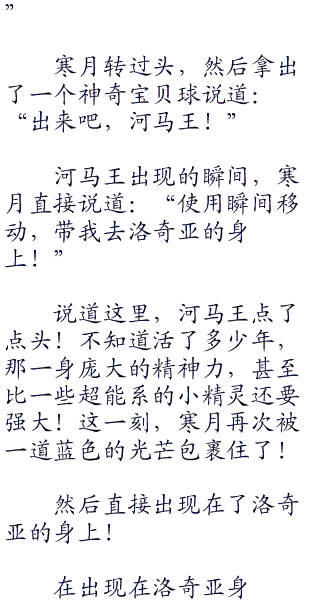 ”
寒月转过头，然后拿出
了一个神奇宝贝球说道：
“出来吧，河马王！”
河马王出现的瞬间，寒
月直接说道：“使用瞬间移
动，带我去洛奇亚的身
上！”
说道这里，河马王点了
点头！不知道活了多少年，
那一身庞大的精神力，甚至
比一些超能系的小精灵还要
强大！这一刻，寒月再次被
一道蓝色的光芒包裹住了！
然后直接出现在了洛奇
亚的身上！
在出现在洛奇亚身